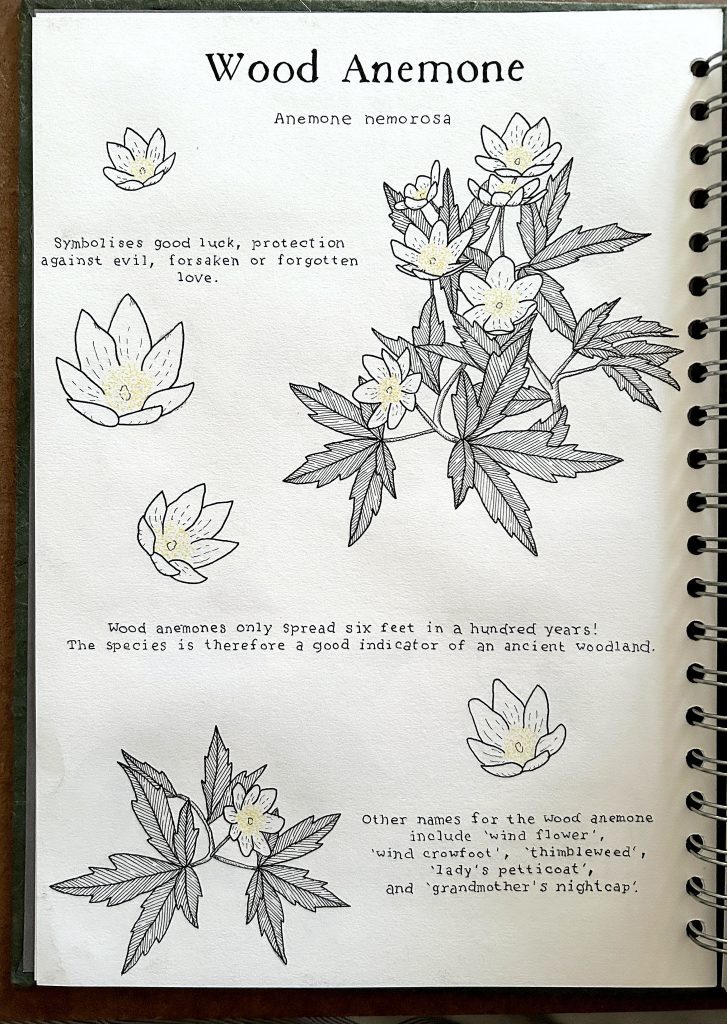 Wood Anemone
Anemone nemorosa
Symbolises good luck, protection
against evil, forsaken or forgotten
love.
Wood anemones only spread six feet in a hundred years!
The species is therefore a good indicator of an ancient woodland.
Other names for the wood anemone
include 'wind flower',
'wind crowfoot', 'thimbleweed',
'lady's petticoat',
and 'grandmother's nightcap'.